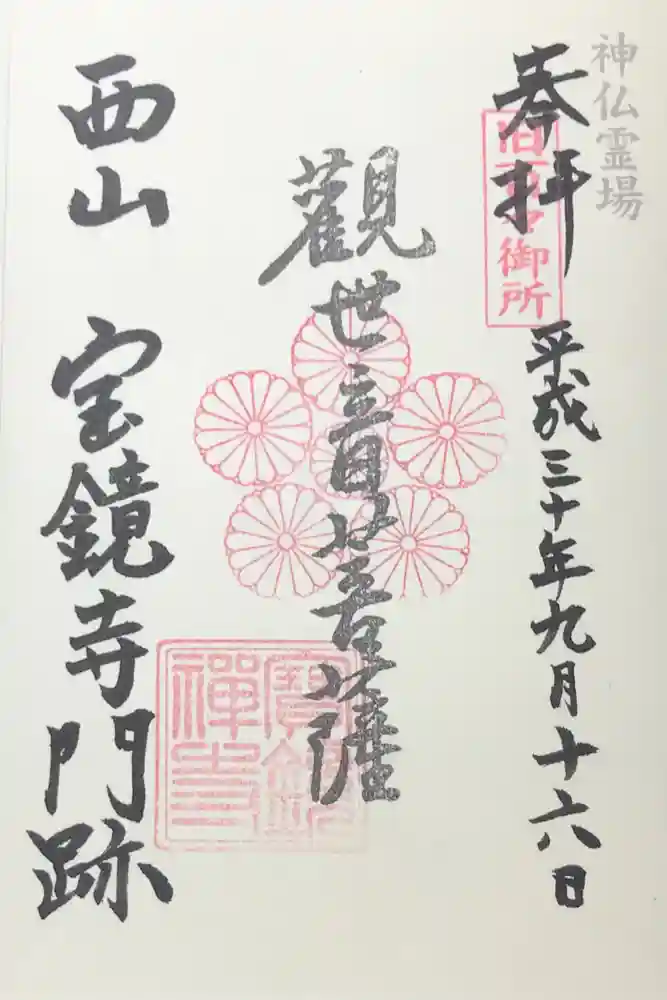 神仏霊場
奉拝
平成三十年九月十六日
御所
觀世音菩薩
西山 宝鏡寺門跡
寶鏡
禅寺